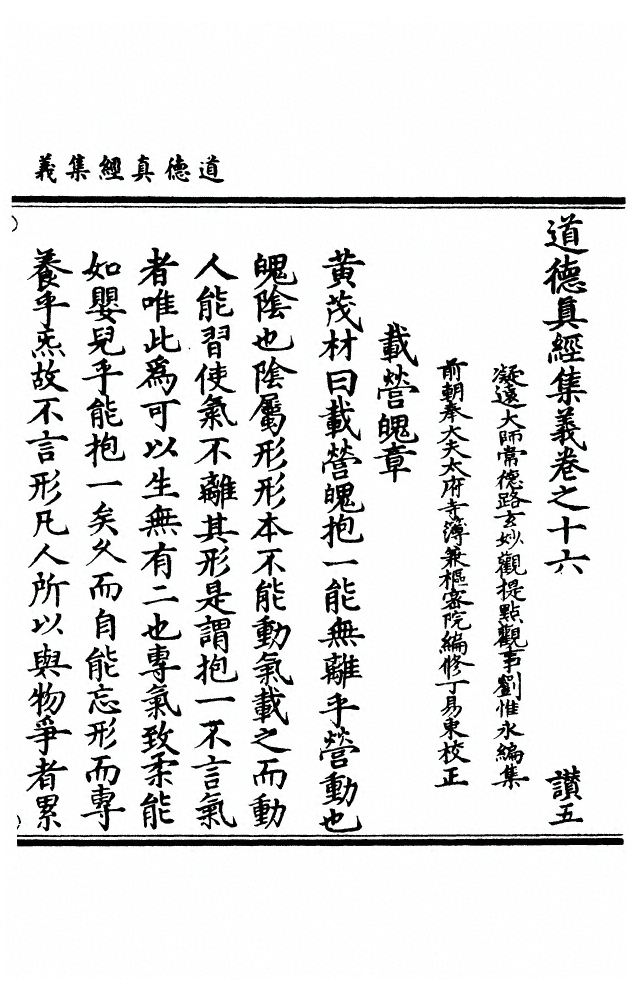 道德真經集義
道德真經集義卷之十六 讃五
凝遠大師常德路玄妙觀提點觀事劉惟永編集
前朝奉大夫太府寺簿兼樞密院編修丁易東校正
載營魄章
黃茂材曰載營魄抱一能無離乎營動也
魄陰也陰屬形形本不能動氣載之而動
人能習使氣不離其形是謂抱一不言氣
者唯此爲可以生無有二也專氣致柔能
如嬰兒乎能抱一矣久而自能忘形而專
養乎炁故不言形凡人所以與物爭者累